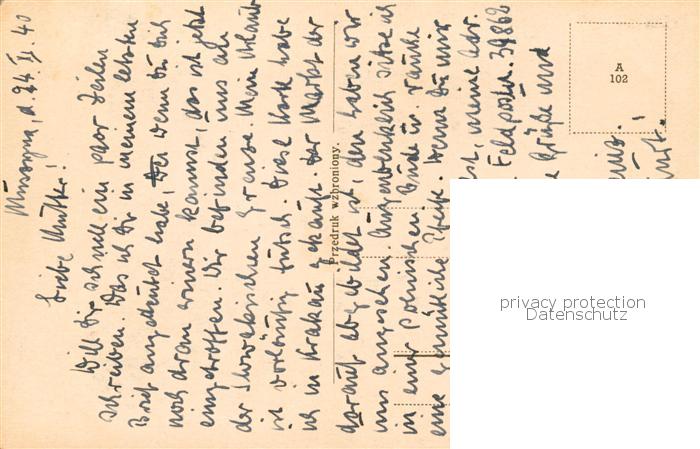 Muszyna, d. 24. II. 40
Liebe Mutter!
Will Dir schnell ein paar Zeilen
schreiben. Das ich Dir in meinem letzten
Brief angedeutet habe, wenn Du Dich
noch dran erinnern kannst, das ist jetzt
eingetroffen. Wir befinden uns an
der Slowakischen Grenze. Mein Urlaub
ist vorläufig futsch. Diese Karte habe
ich in Krakau gekauft. Der Markt der
darauf abgebildet ist, den haben wir
uns angesehen. Augenblicklich sitze ich
in einer Polnischen Bude u. rauche
eine gemütliche Pfeife. Wenn Du mir
meine Adr.
Feldpostnr. 39862
Grüße und
Przedruk wzbroniony.
A
102
privacy protection
Datenschutz